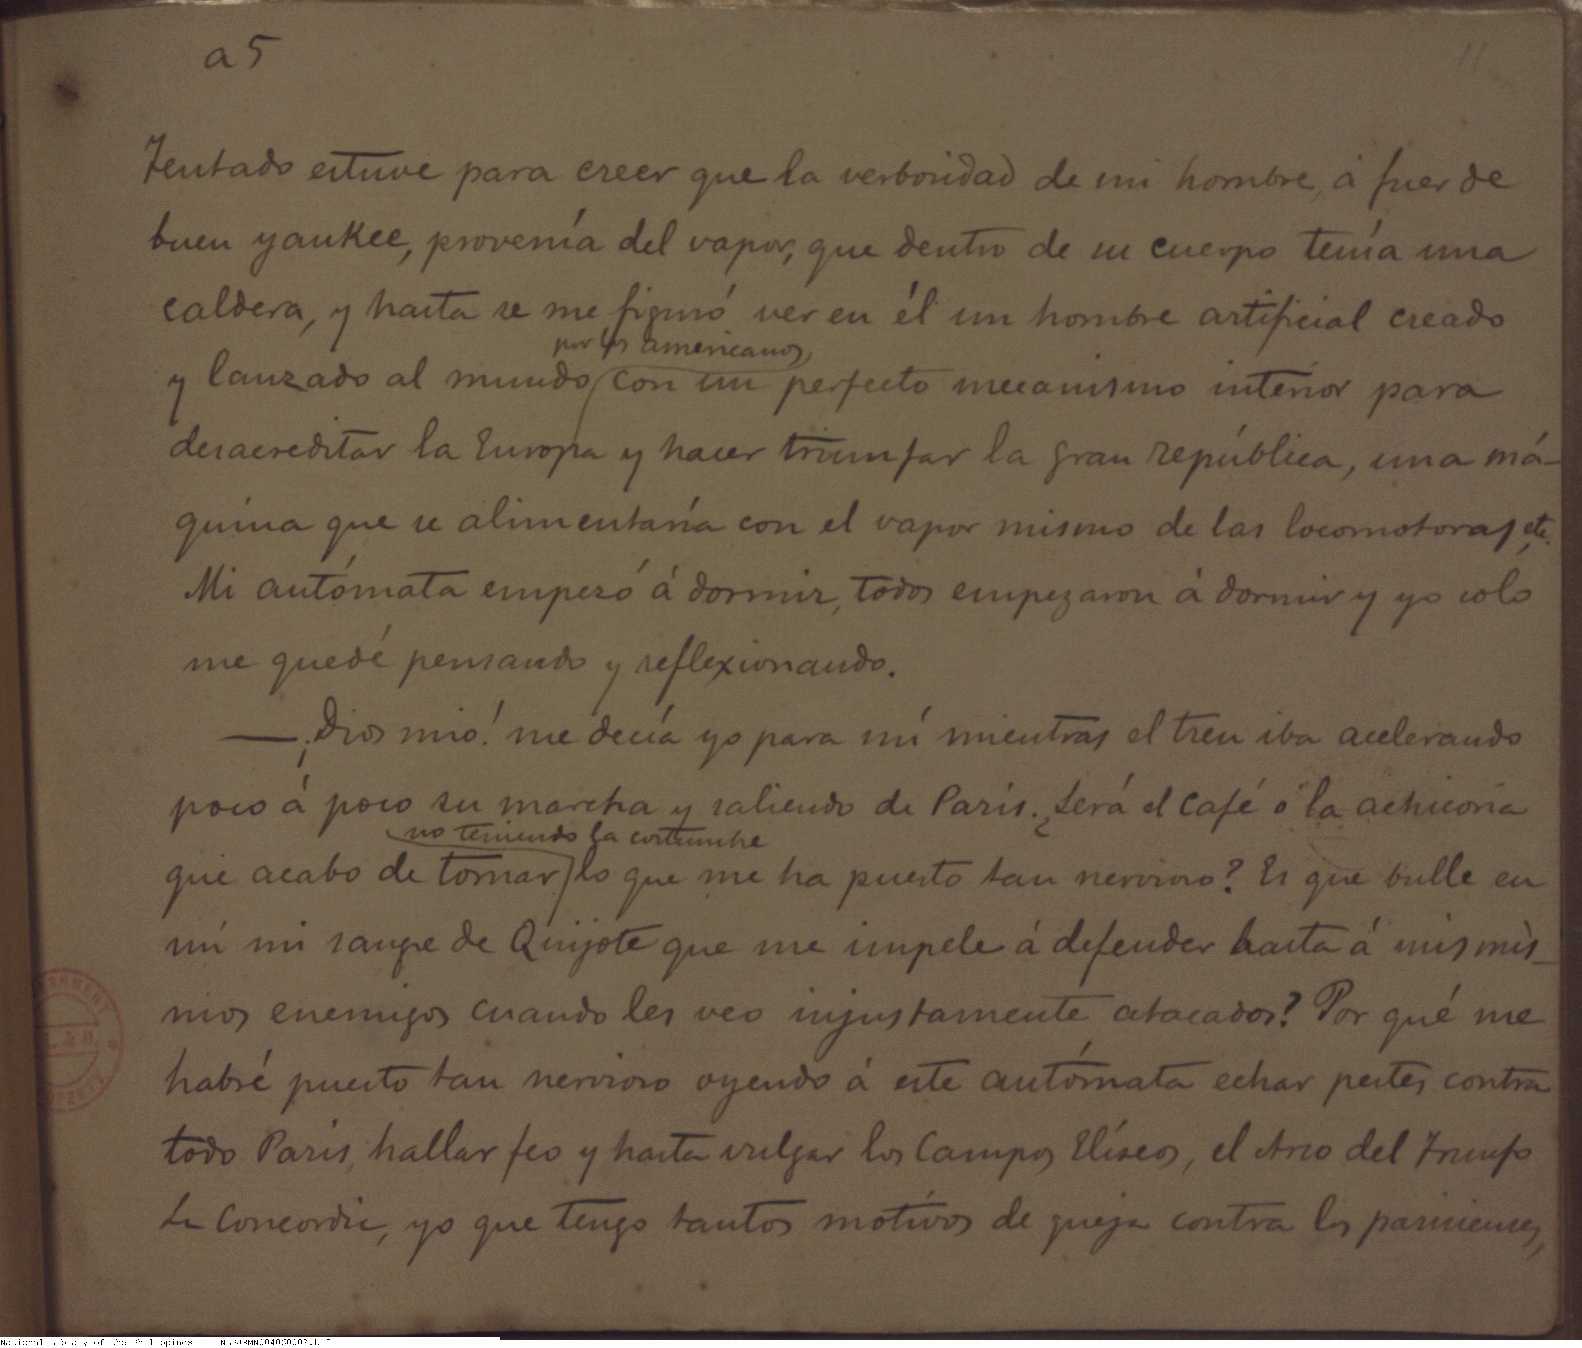 a5
11
Tentado estuve para creer que la verbosidad de mi hombre, á fuer de
buen yankee, provenía del vapor, que dentro de su cuerpo tenía una
caldera, y hasta se me figuró ver en él un hombre artificial creado
por los americanos,
y lanzado al mundo con un perfecto mecanismo interior para
desacreditar la Europa y hacer triunfar la gran República, una má-
quina que se alimentaría con el vapor mismo de las locomotoras, etc.
Mi autómata empezó á dormir, todos empezaron á dormir y yo solo
me quedé pensando y reflexionando.
—¡Dios mio! me decía yo para mí mientras el tren iba acelerando
poco á poco su marcha y saliendo de París. ¿Será el café ó la achicoria
no teniendo la costumbre
que acabo de tomar lo que me ha puesto tan nervioso? Es que bulle en
mí mi sangre de Quijote que me impele á defender hasta á mis mis-
mos enemigos cuando les veo injustamente atacados? Por qué me
habré puesto tan nervioso oyendo á este autómata echar pestes contra
todo París, hallar feo y hasta vulgar los Campos Elíseos, el Arco del Triunfo
La Concordia, yo que tengo tantos motivos de queja contra los parisienses,
National Library of the Philippines